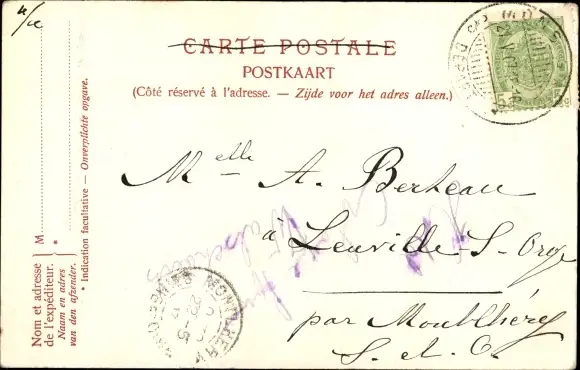 4/10
CARTE POSTALE
POSTKAART
(Côté réservé à l'adresse. — Zijde voor het adres alleen.)
Melle A. Berheau
à Leuville-S-Orge
par Montlhéry
S. et O.
MONTLHERY
22 -5
M
*
Nom et adresse
de l'expéditeur.
Naam en adres
van den afzender.
* Indication facultative — Onverplichte opgave.